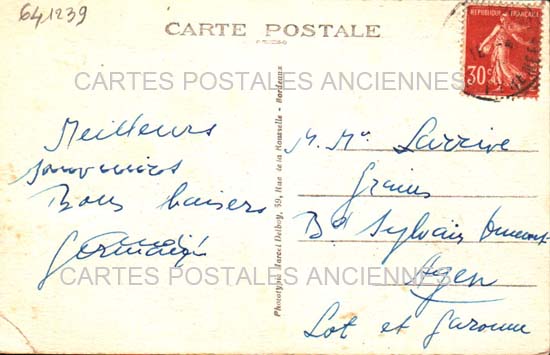 641239
CARTE POSTALE
REPUBLIQUE FRANÇAISE
30c
CARTES POSTALES ANCIENNES
Meilleurs
souvenirs
Bons baisers
Germaine
Phototypie Marcel Delboy, 59, Rue de la Rousselle - Bordeaux
M. Me Larrive
Grains
Bd Sylvain Dumont
Agen
Lot et Garonne
CARTES POSTALES ANCIENNES